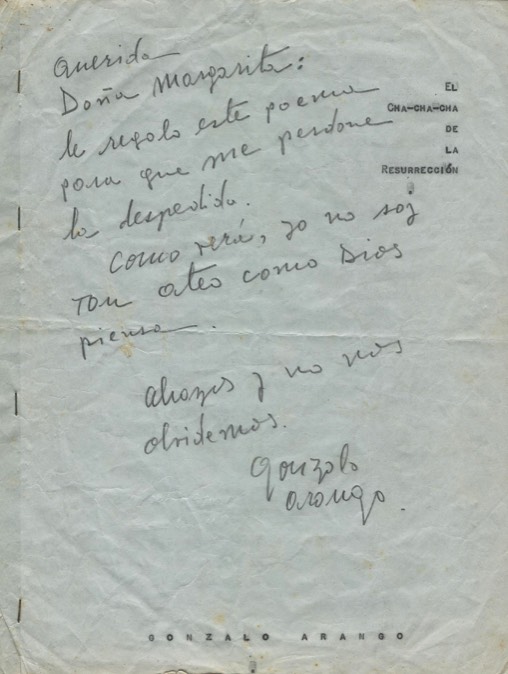 Querida
Doña Margarita:
le regalo este poema
para que me perdone
la despedida.
Como verá, yo no soy
tan ateo como Dios
piensa.
Abrazos y no nos
olvidemos.
Gonzalo
Arango.
EL
CHA-CHA-CHA
DE
LA
RESURRECCIÓN
GONZALO ARANGO